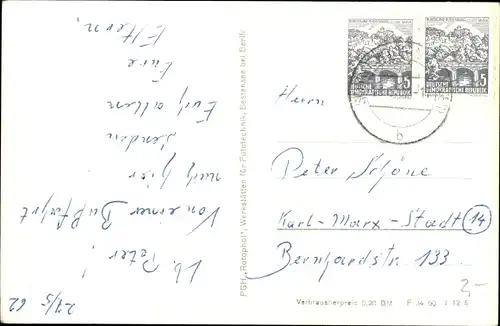 27/5 62
Lb. Peter,
Von einer Bußfahrt
nach hier
senden
Euch allen
Eure
Eltern.
PGH „Rotophot", Werkstätten für Fototechnik, Bestensee bei Berlin
DEUTSCHE
DEMOKRATISCHE REPUBLIK 5
DEUTSCHE
DEMOKRATISCHE REPUBLIK 5
b
Herrn
Peter Schöne
Karl-Marx-Stadt 14
Bernhardstr. 133
2,-
Verbraucherpreis 0,20 DM